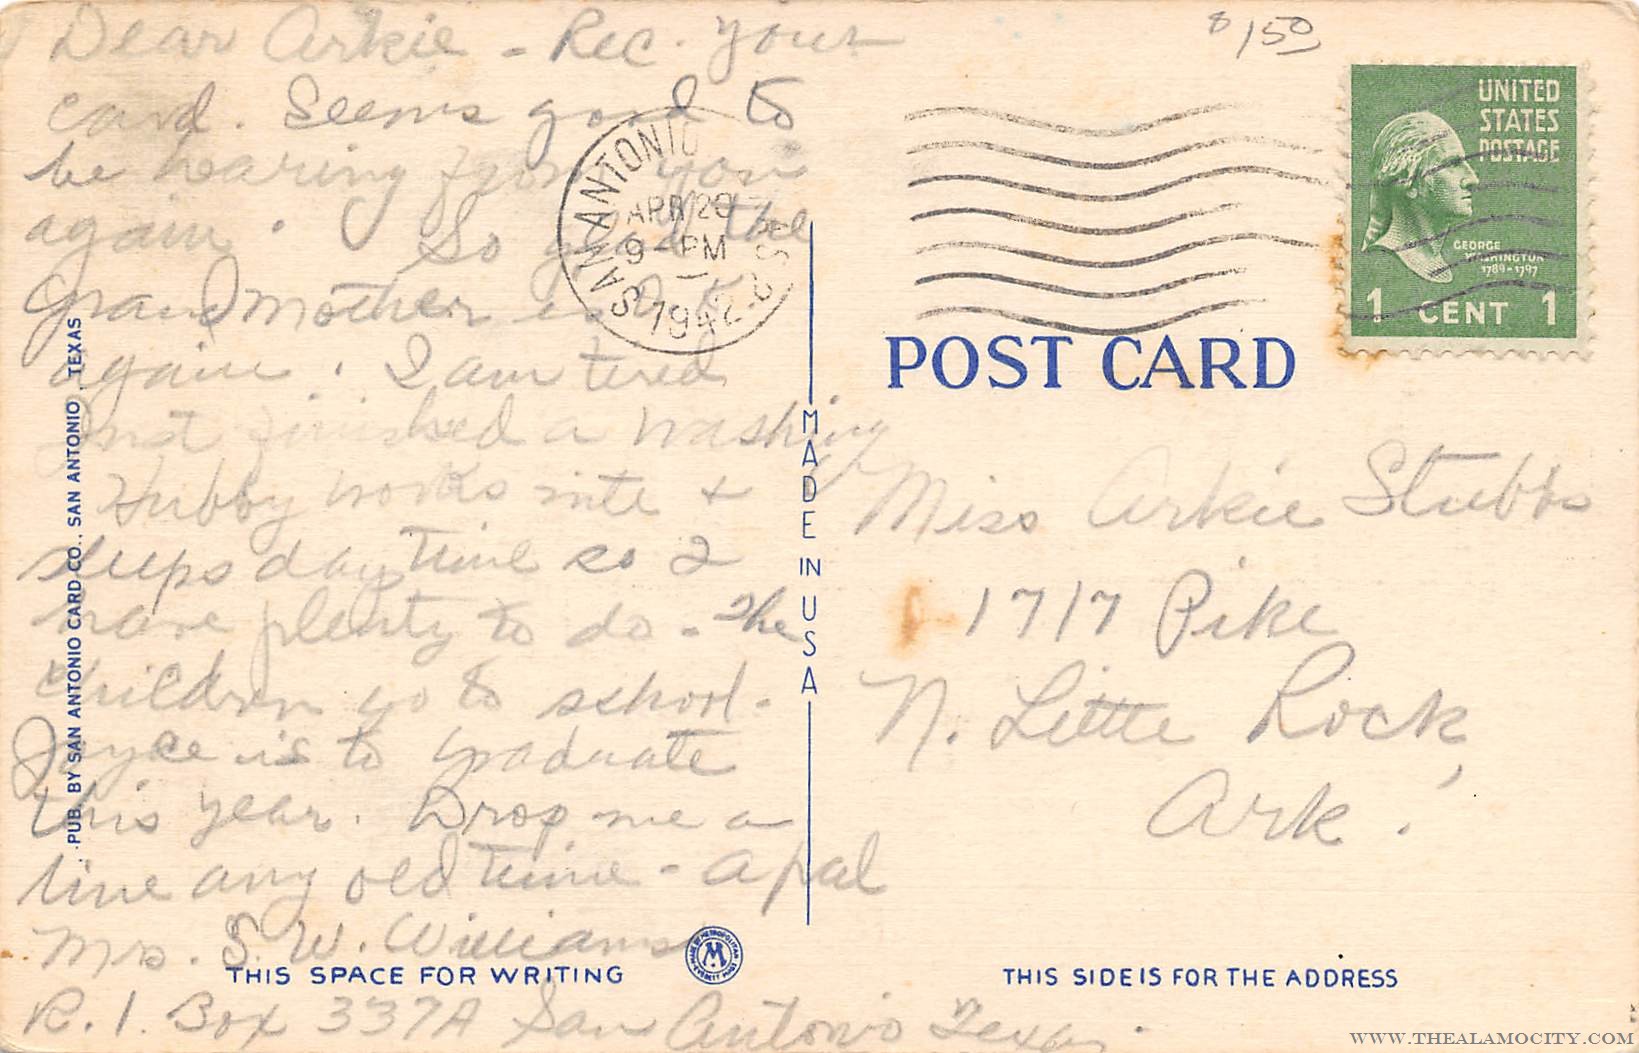 Dear Arkie - Rec. your
card. Seems good to
be hearing from you
again. So glad the
Grandmother is O.K.
again. I am tired
Just finished a washing
Hubby works nite +
sleeps day time so I
have plenty to do - The
children go to school.
Joyce is to graduate
this year. Drop me a
line any old time - a pal
Mrs. S. W. Williams
R. 1. Box 337A San Antonio Texas.
THIS SPACE FOR WRITING
PUB. BY SAN ANTONIO CARD CO., SAN ANTONIO, TEXAS
SAN ANTONIO
APR 20
9 - PM
1942
MADE IN USA
M
$150
UNITED
STATES
POSTAGE
GEORGE
WASHINGTON
1789-1797
1 CENT 1
POST CARD
Miss Arkie Stubbs
1717 Pike
N. Little Rock,
Ark.
THIS SIDE IS FOR THE ADDRESS
WWW.THEALAMOCITY.COM